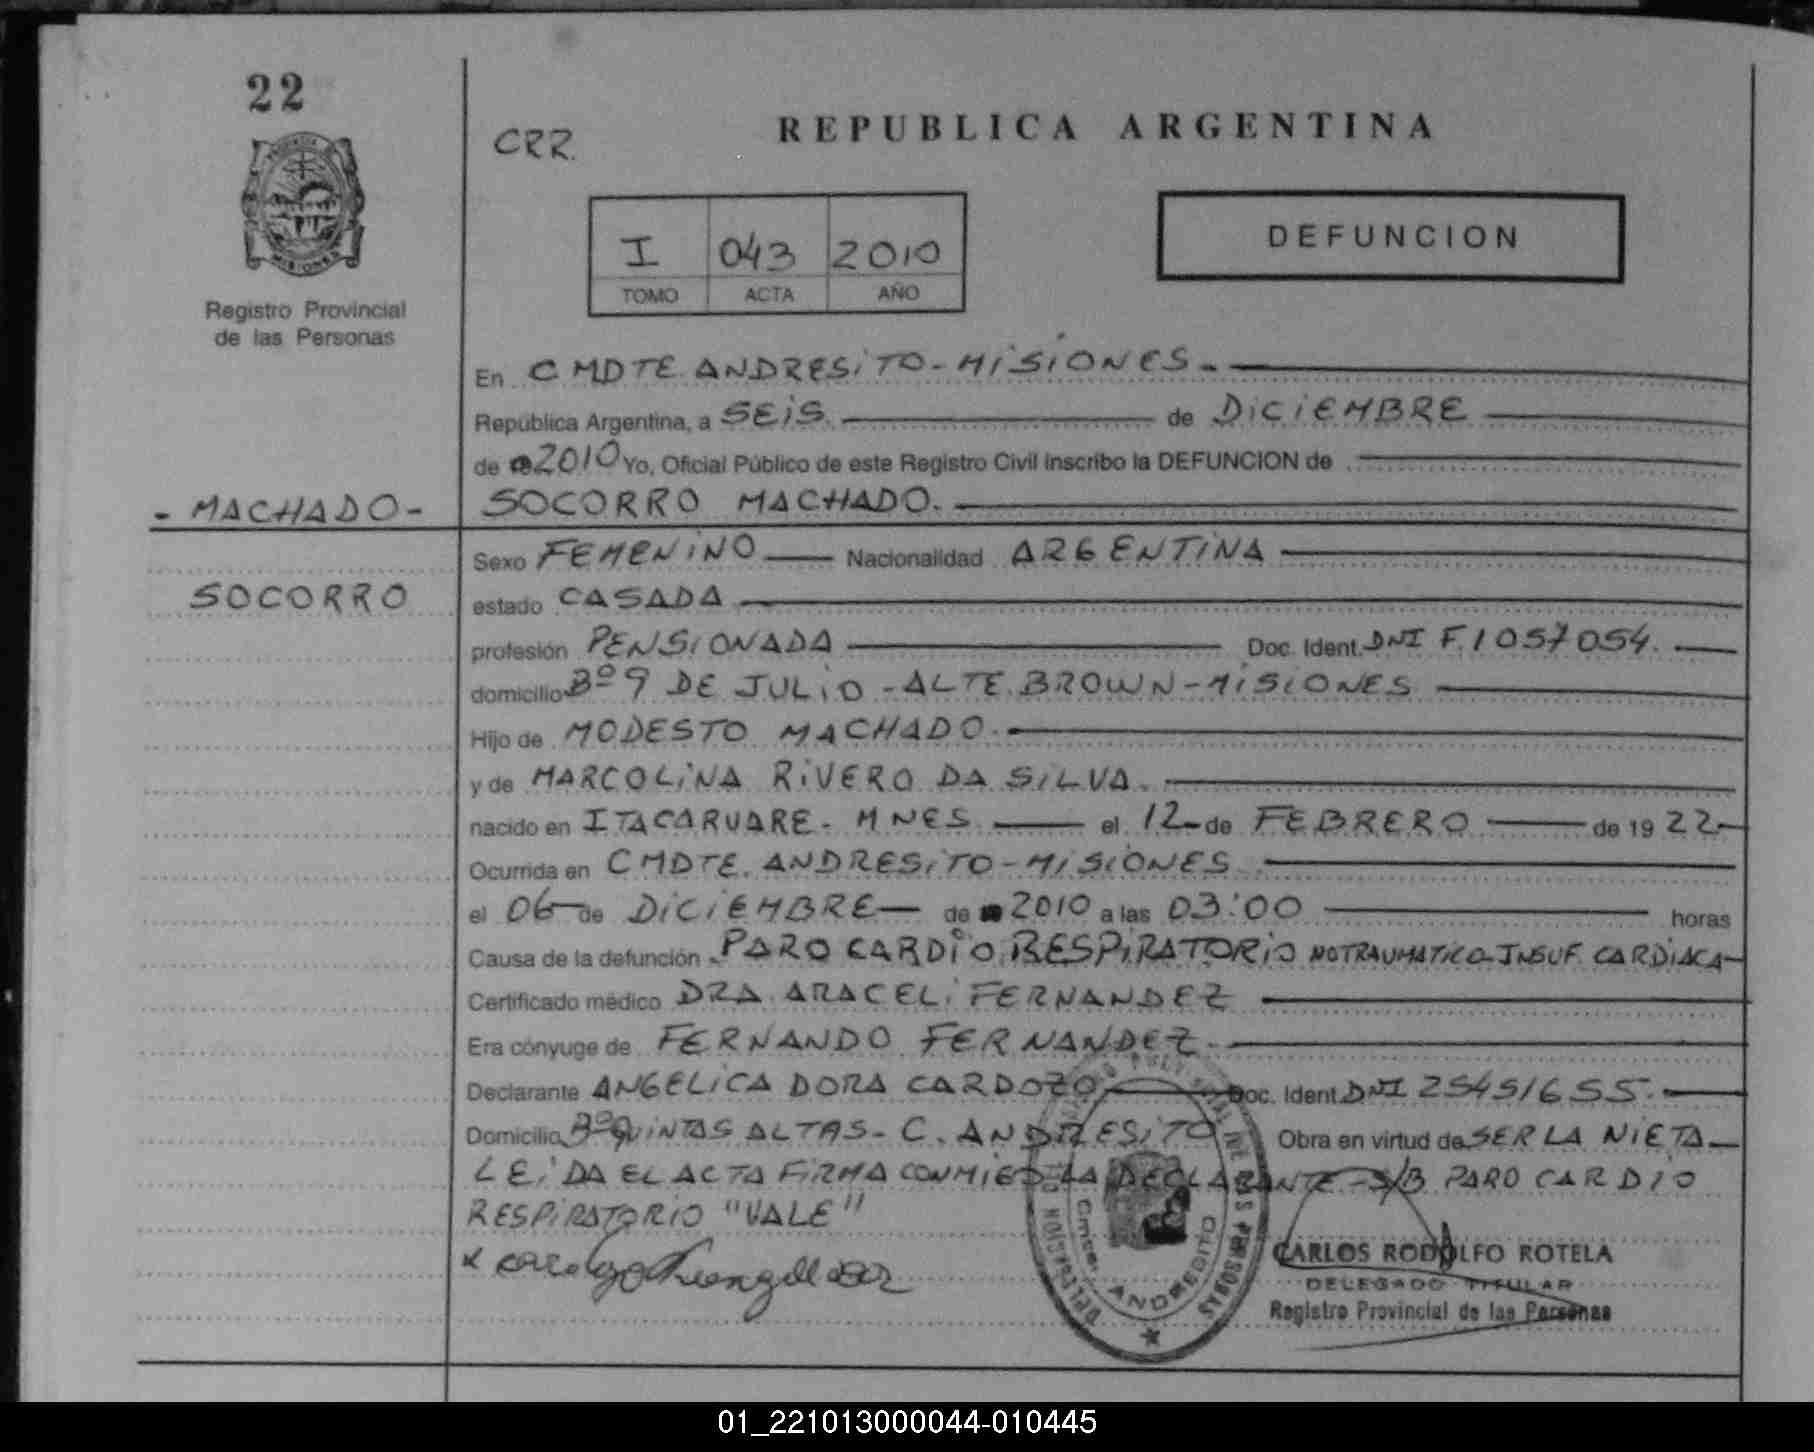 22
Registro Provincial
de las Personas
CRR.
REPUBLICA ARGENTINA
I 043 2010
TOMO ACTA AÑO
DEFUNCION
En CMDTE ANDRESITO - MISIONES.-
República Argentina, a SEIS de DICIEMBRE
de 2010 Yo, Oficial Público de este Registro Civil inscribo la DEFUNCION de
- MACHADO - SOCORRO MACHADO.
Sexo FEMENINO Nacionalidad ARGENTINA
SOCORRO estado CASADA
profesión PENSIONADA Doc. Ident. DNI F.1057054.
domicilio Bº 9 DE JULIO - ALTE. BROWN - MISIONES
Hijo de MODESTO MACHADO.
y de MARCOLINA RIVERO DA SILVA.
nacido en ITACARUARE. MNES el 12 de FEBRERO de 19 22
Ocurrida en CMDTE. ANDRESITO - MISIONES
el 06 de DICIEMBRE de 2010 a las 03:00 horas
Causa de la defunción PARO CARDIO RESPIRATORIO NO TRAUMATICO - INSUF. CARDIACA
Certificado médico DRA. ARACELI FERNANDEZ
Era cónyuge de FERNANDO FERNANDEZ.
Declarante ANGELICA DORA CARDOZO Doc. Ident. DNI 25451655.
Domicilio Bº QUINTAS ALTAS - C. ANDRESITO Obra en virtud de SER LA NIETA
LEIDA EL ACTA FIRMA CONMIGO LA DECLARANTE - S/B PARO CARDIO
RESPIRATORIO "VALE"
CARLOS RODOLFO ROTELA
DELEGADO TITULAR
Registro Provincial de las Personas
01_221013000044-010445